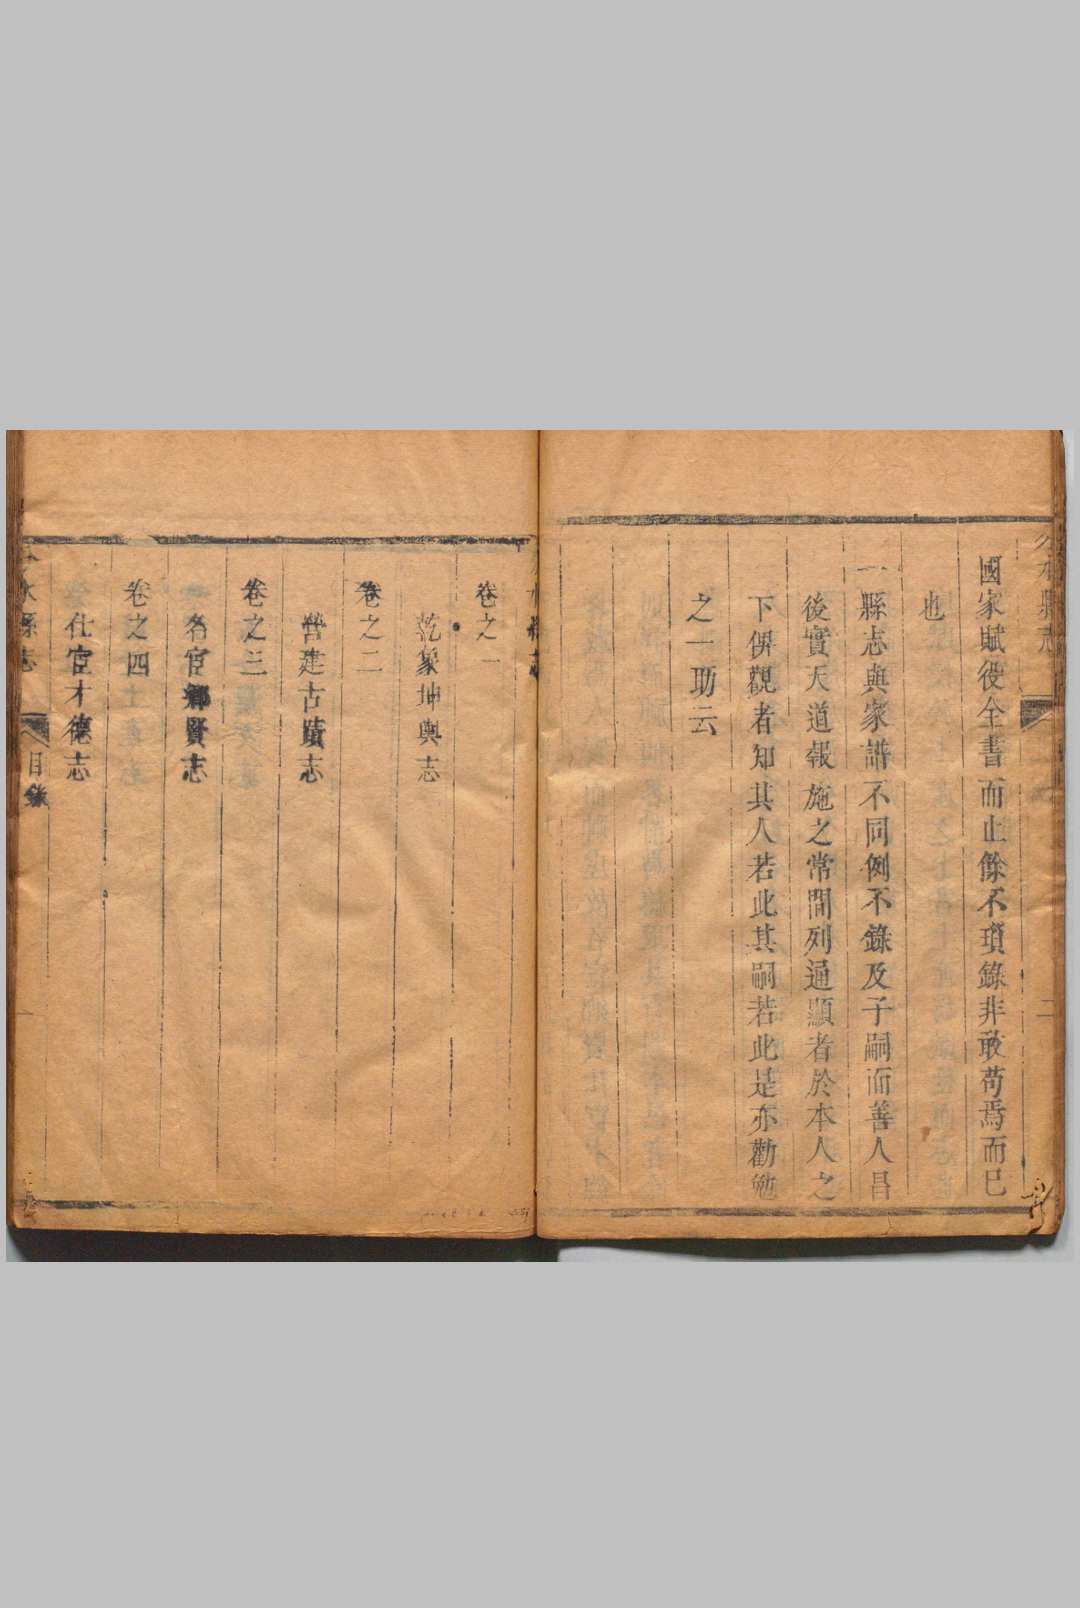 國家賦役全書而止餘不瑣錄非敢苟焉而已
也
一縣志與家譜不同例不錄及子嗣而善人昌
後實天道報施之常間列通顯者於本人之
下俾觀者知其人若此其嗣若此是亦勸勉
之一助云
卷之一
乾象坤輿志
卷之二
營建古蹟志
卷之三
名宦鄉賢志
卷之四
仕宦才德志
水縣志
目錄